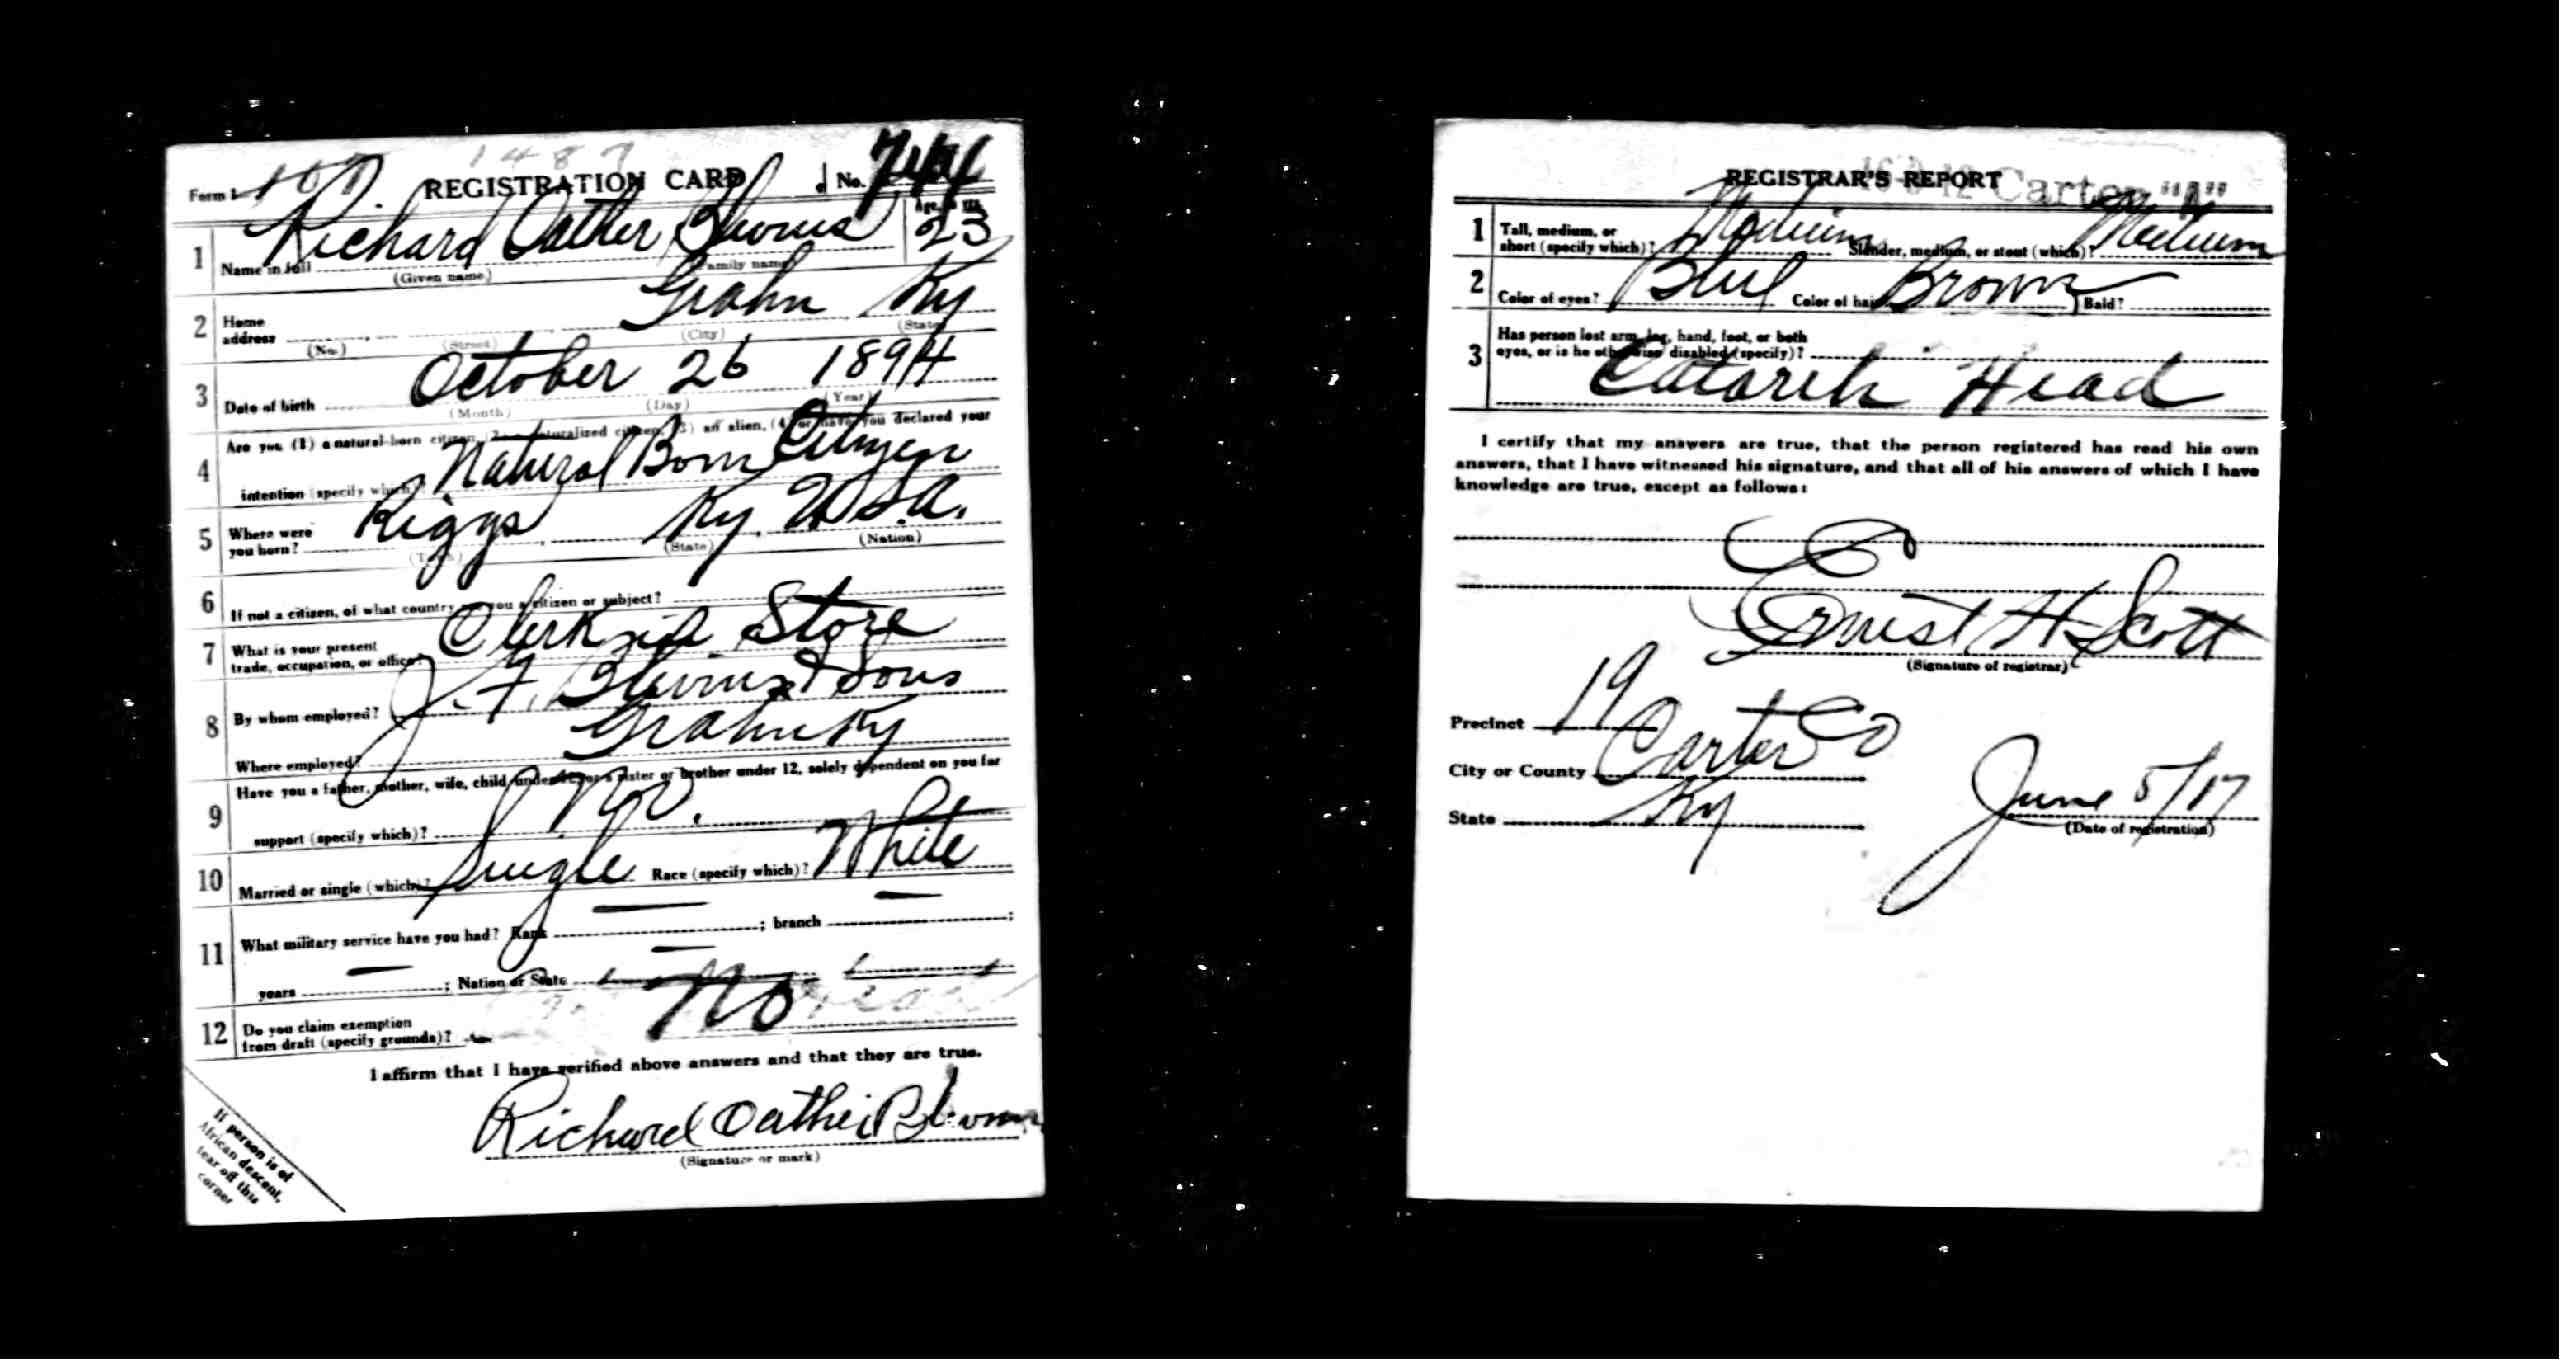 1487
Form 1 REGISTRATION CARD No.
1 Name in full Richard Oather Blevins Age, in yrs. 23
(Given name) (Family name)
2 Home address Grahn Ky
(No.) (Street) (City) (State)
3 Date of birth October 26 1894
(Month) (Day) (Year)
4 Are you (1) a natural-born citizen, (2) a naturalized citizen, (3) an alien, (4) or have you declared your
intention (specify which)? Natural Born Citizen
5 Where were you born? Riggs Ky, U.S.A.
(Town) (State) (Nation)
6 If not a citizen, of what country are you a citizen or subject?
7 What is your present trade, occupation, or office? Clerk in Store
8 By whom employed? J. F. Blevins & Sons
Where employed? Grahn Ky
9 Have you a father, mother, wife, child under 12, or a sister or brother under 12, solely dependent on you for
support (specify which)? No.
10 Married or single (which)? Single Race (specify which)? White
11 What military service have you had? Rank — ; branch — ;
years — ; Nation or State —
12 Do you claim exemption from draft (specify grounds)? No
I affirm that I have verified above answers and that they are true.
Richard Oather Blevins
(Signature or mark)
If person is of
African descent,
tear off this
corner
REGISTRAR'S REPORT
Carter "1"
1 Tall, medium, or short (specify which)? Medium Slender, medium, or stout (which)? Medium
2 Color of eyes? Blue Color of hair? Brown Bald?
3 Has person lost arm, leg, hand, foot, or both
eyes, or is he otherwise disabled (specify)?
Catarrh Head
I certify that my answers are true, that the person registered has read his own
answers, that I have witnessed his signature, and that all of his answers of which I have
knowledge are true, except as follows:
Ernest H Scott
(Signature of registrar)
Precinct 19
City or County Carter Co
State Ky
June 5/17
(Date of registration)